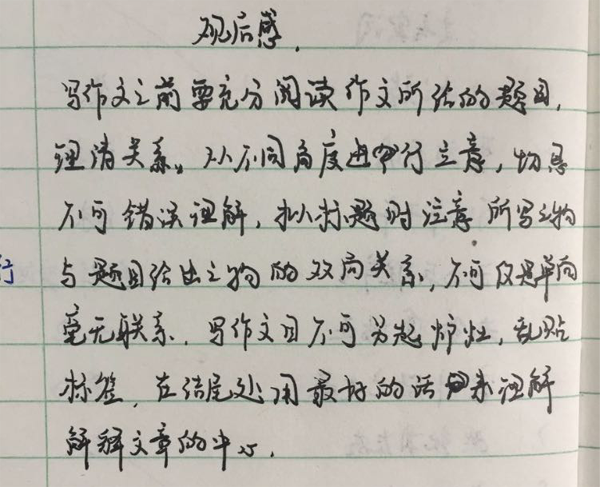 观后感.
写作文之前要充分阅读作文所给的题目,
理清关系。从不同角度进行立意,切忌
不可错误理解,拟标题时注意所写之物
与题目给出之物的双向关系,不可仅是单向
毫无联系,写作文目不可另起炉灶,乱贴
标签,在结尾处用最好的话来理解
解释文章的中心.
行